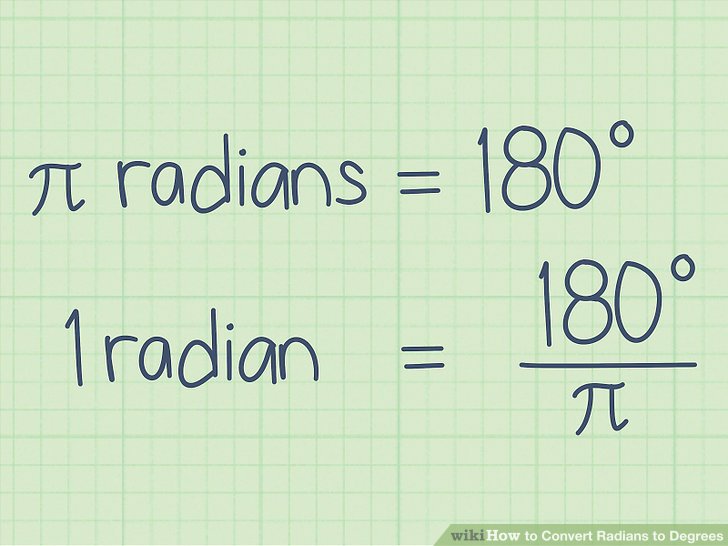 π radians = 180°
1 radian = 180°/π
wikiHow to Convert Radians to Degrees